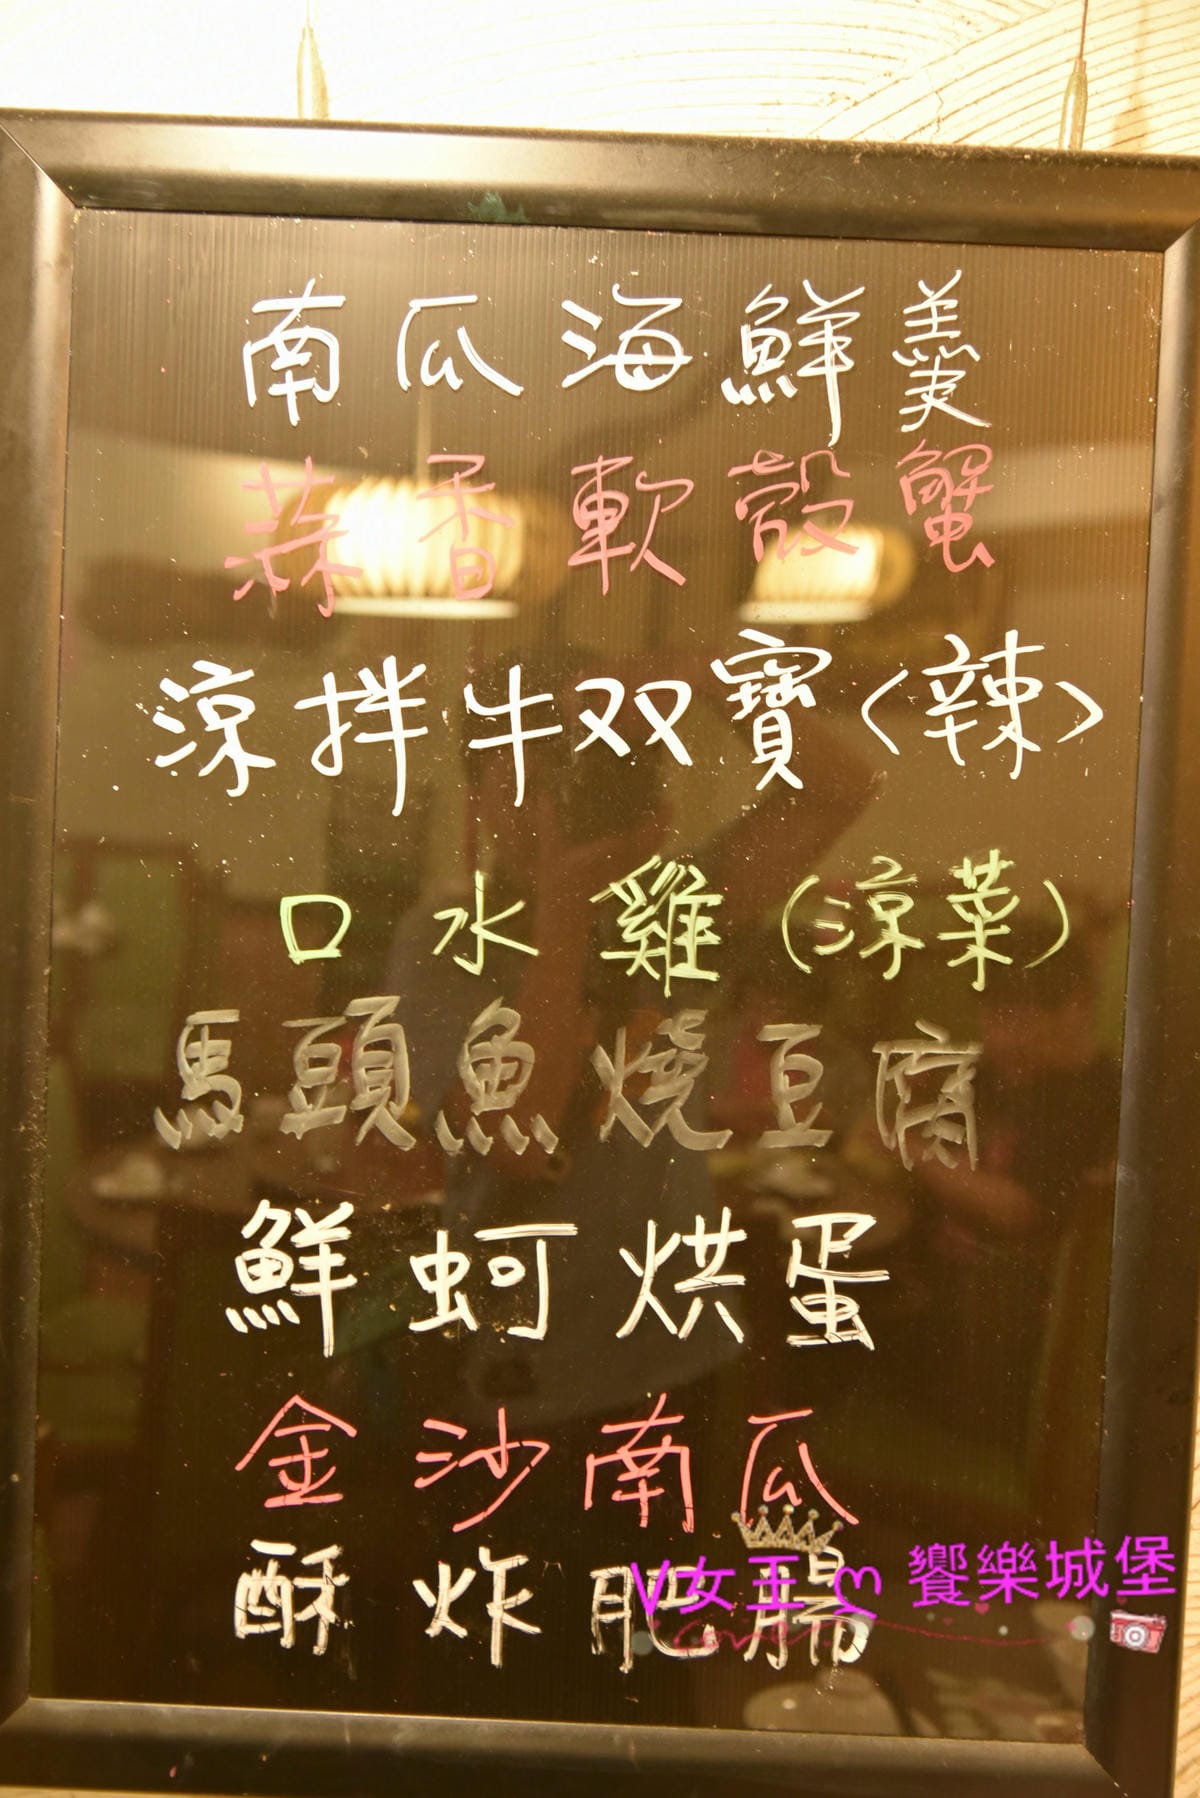 南瓜海鮮羹
蒜香軟殼蟹
涼拌牛双寶〈辣〉
口水雞(涼菜)
馬頭魚燒豆腐
鮮蚵烘蛋
金沙南瓜
酥炸肥腸
V女王 饗樂城堡
Love